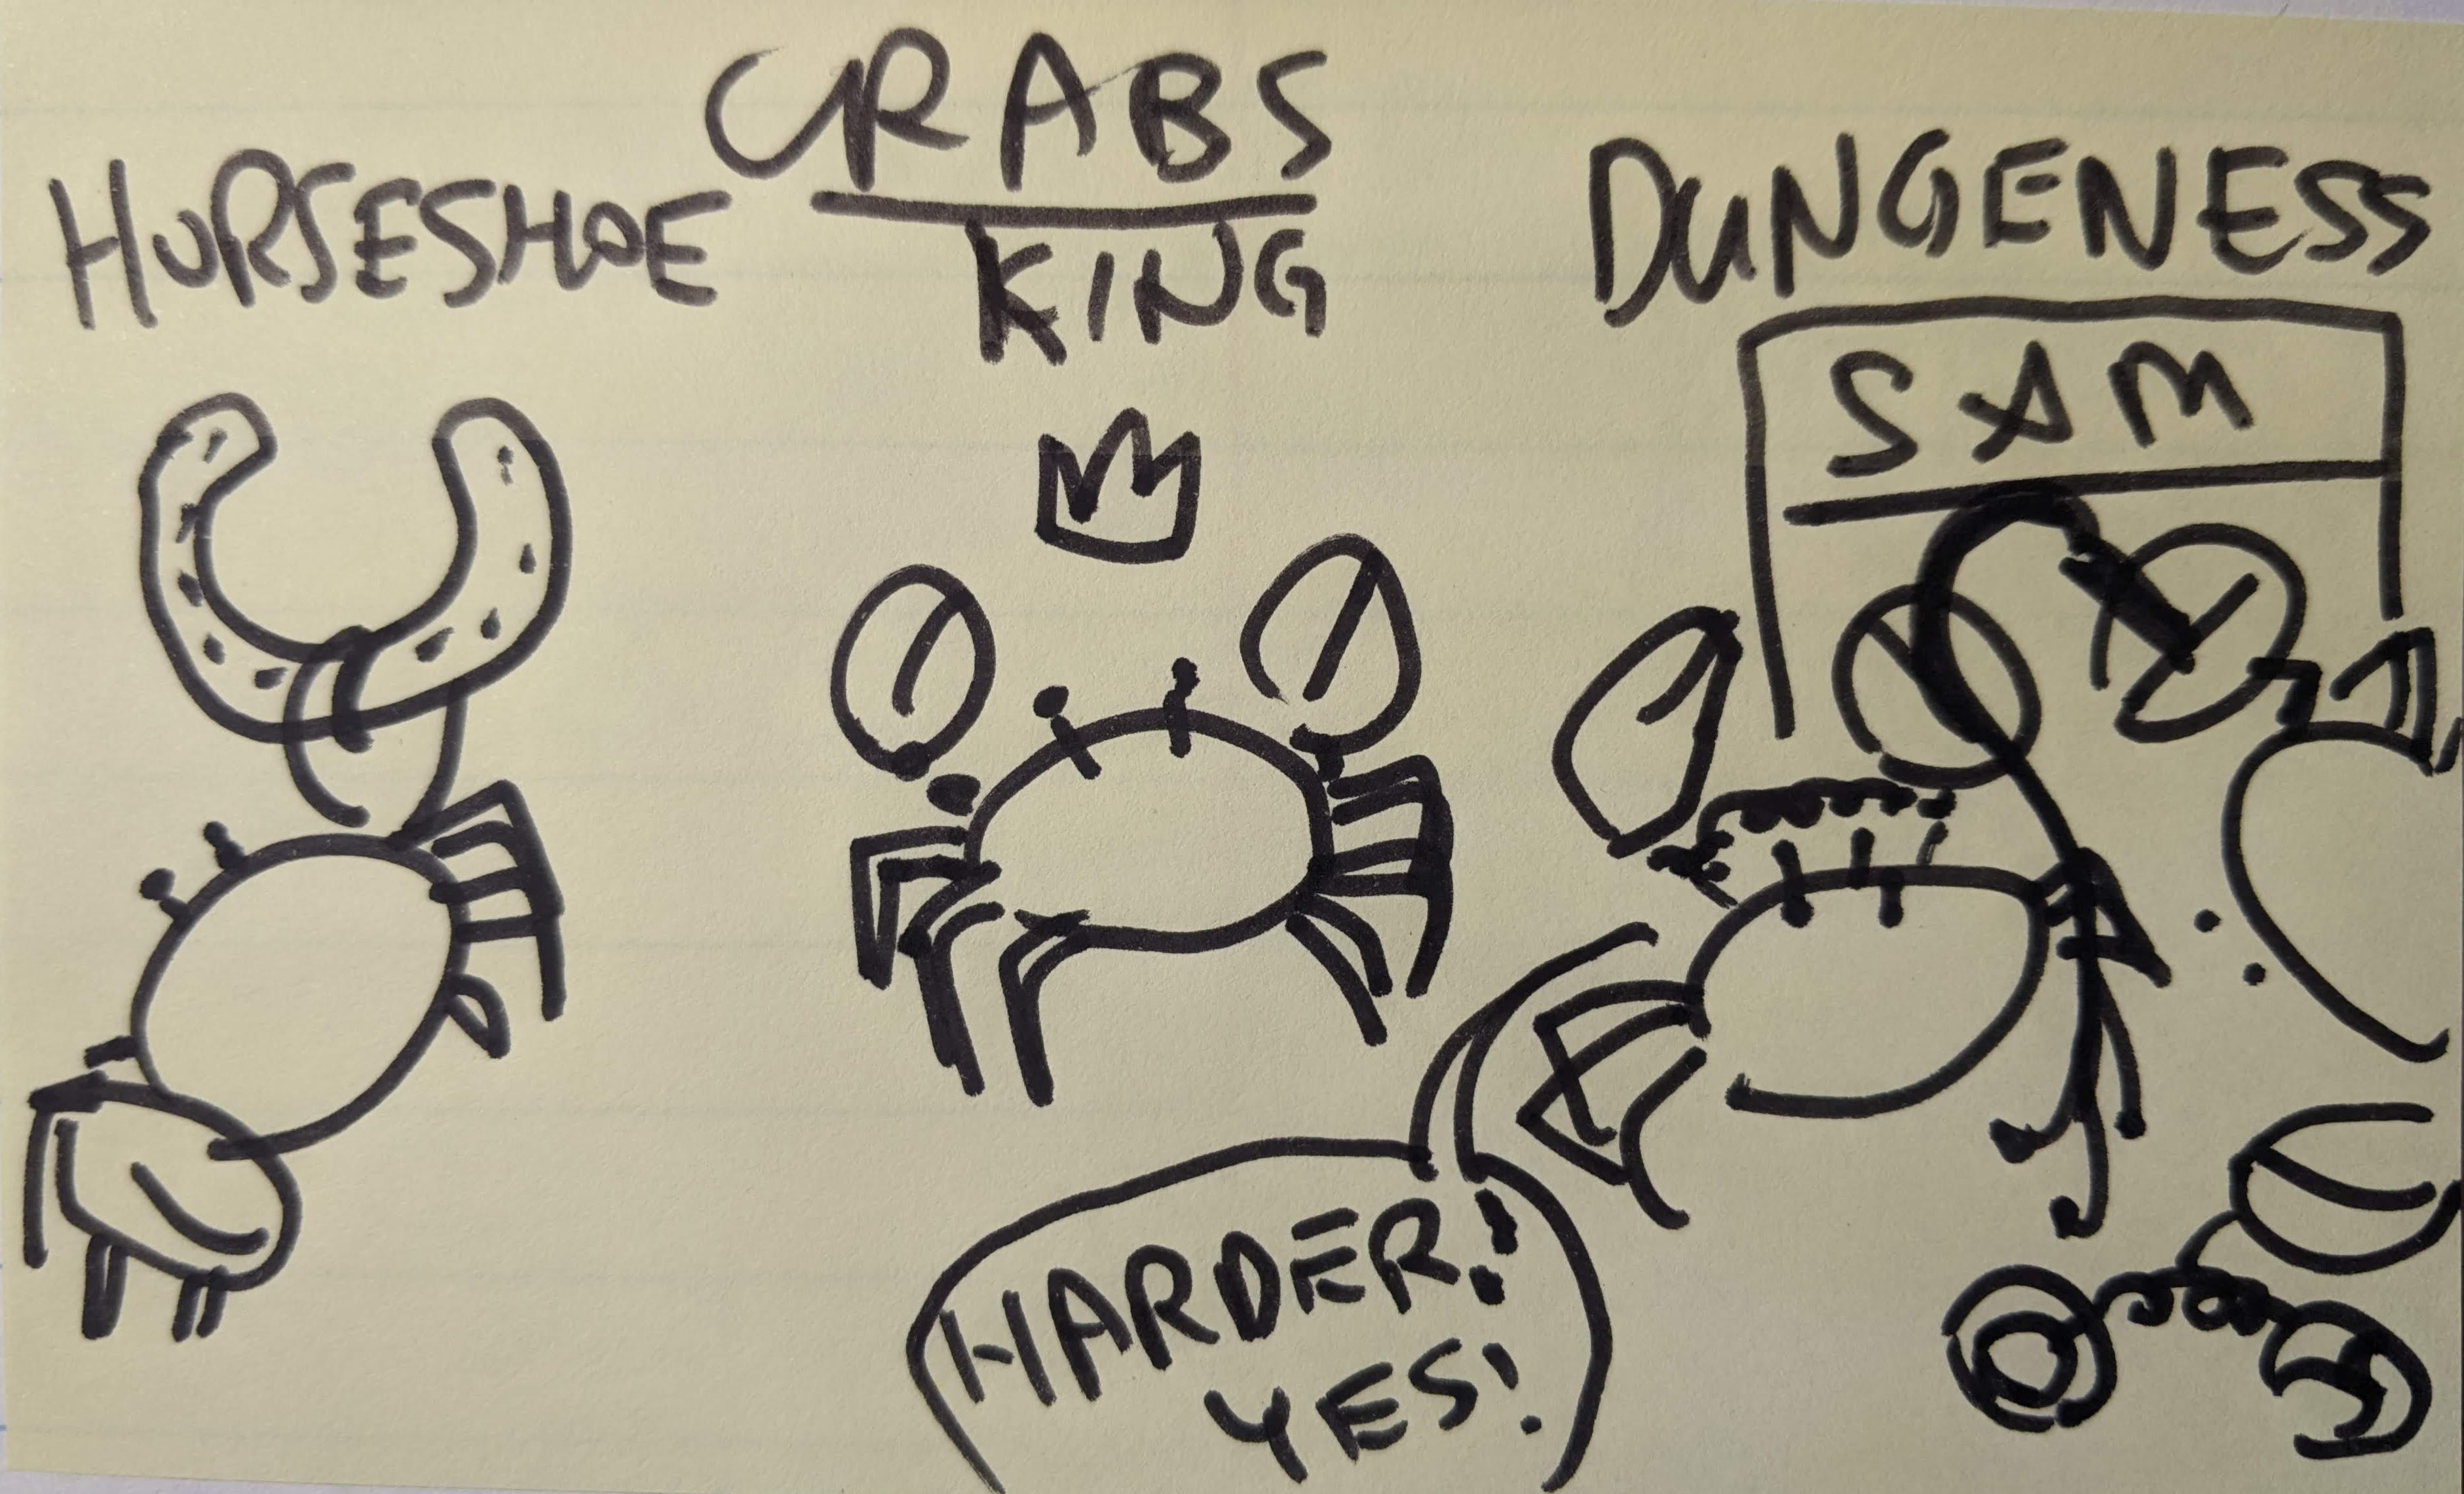 CRABS
HORSESHOE
KING
DUNGENESS
SAM
HARDER!
YES!